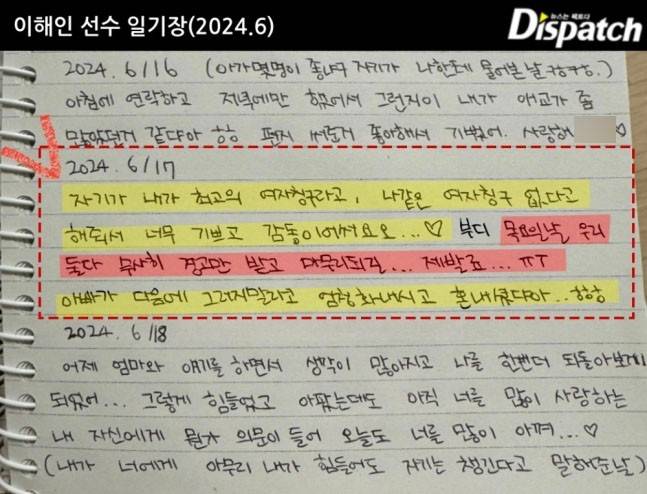 이해인 선수 일기장(2024.6)
뉴스는 팩트다
Dispatch
2024. 6/16 (아가몇명이 좋냐구 자기가 나한테 물어본날 ㅎㅎㅎ.)
아침에 연락하고 저녁에만 했어서 그런지이 내가 애교가 좀
많았던거 같다아 ㅎㅎ 편지 써준거 좋아해서 기뻤어. 사랑해 ♡
2024. 6/17
자기가 내가 최고의 여자친구라고, 나같은 여자친구 없다고
해줘서 너무 기쁘고 감동이어써요오...♡ 부디 목요일날 우리
둘다 무사히 경고만 받고 마무리되길... 제발료... ㅠㅜ
아빠가 다음에 그러지말라고 엄청화내시고 혼내셨다아..ㅎㅎ
2024. 6/18
어제 엄마와 얘기를 하면서 생각이 많아지고 나를 한번더 되돌아보게
되었어... 그렇게 힘들었고 아팠는데도 아직 너를 많이 사랑하는
내 자신에게 뭔가 의문이 들어 오늘도 너를 많이 아껴...♡
(내가 너에게 아무리 내가 힘들어도 자기는 챙긴다고 말해준날)